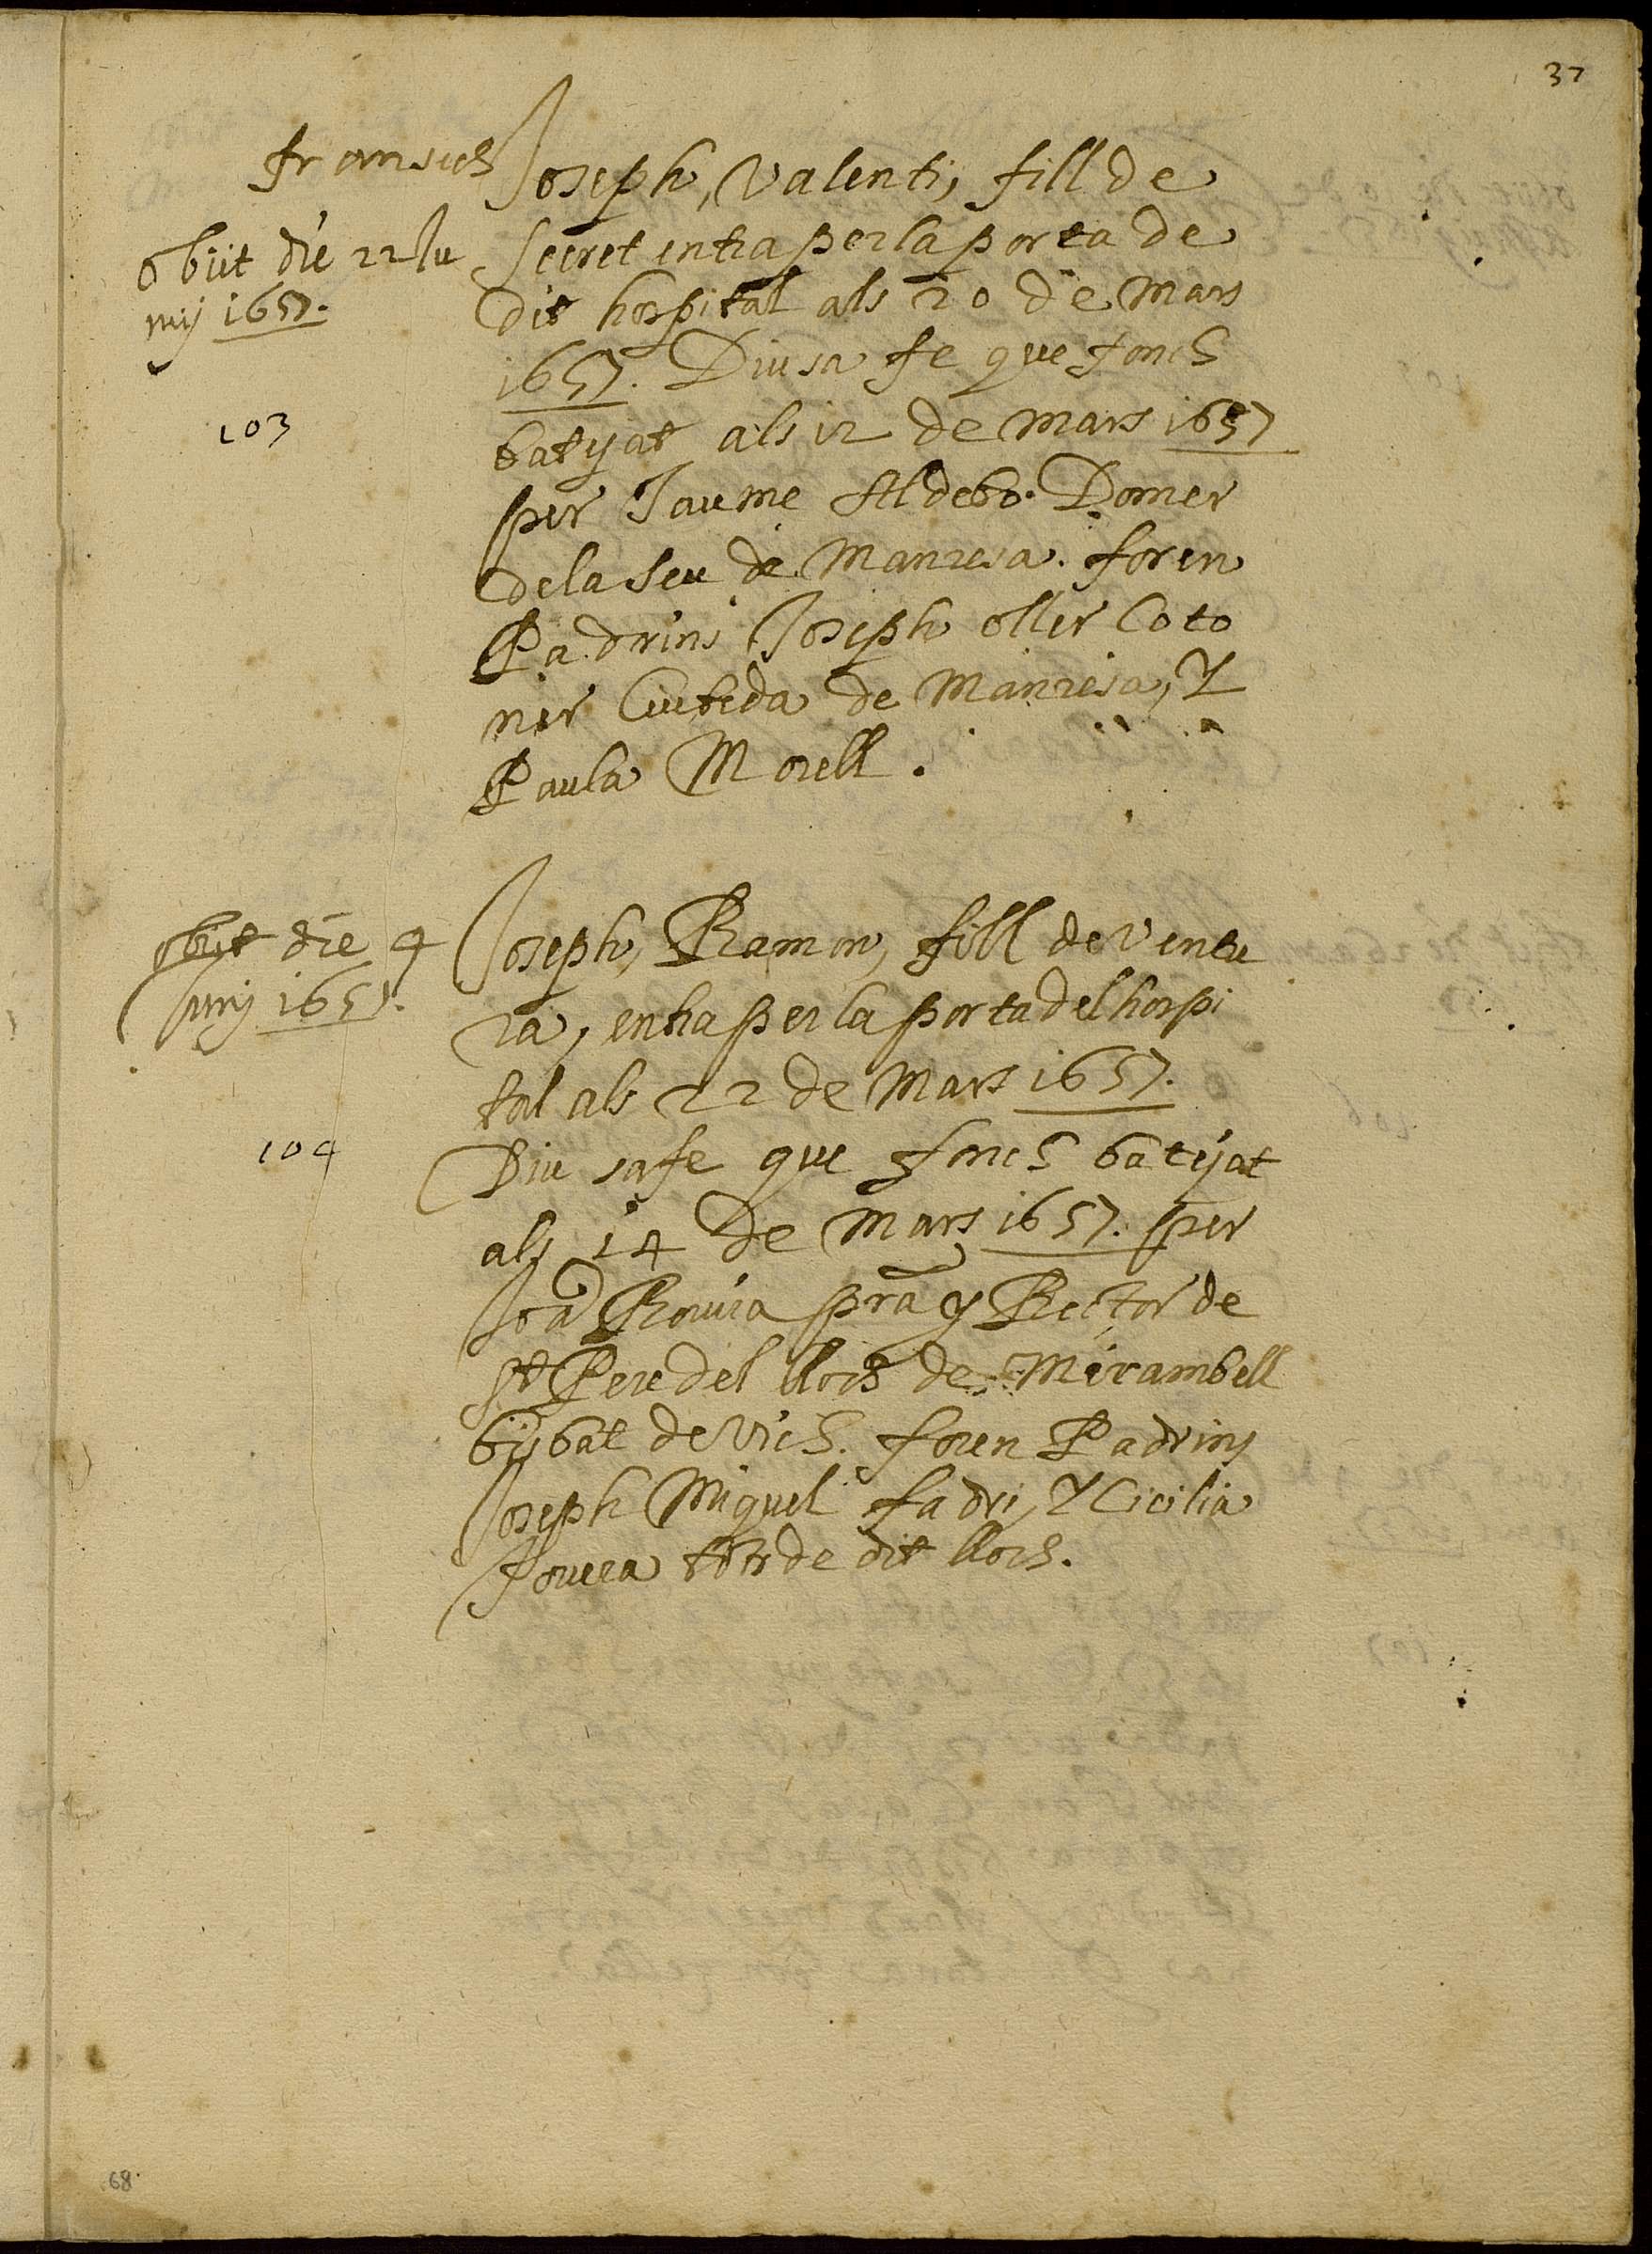 37
fransich
Joseph, Valenti, fill de
Secret entra per la porta de
dit hospital als 20 de Mars
1657. Diu sa fe que fonch
batyat als 12 de Mars 1657
per Jaume Aldebo. Domer
de la Seu de Manresa. foren
Padrins Joseph oller Coto
ner Ciuteda de Manresa, Y
Paula Morell.
obiit die 22 Iu
nij 1657.
103
Joseph, Ramon, fill de Ventu
ra, entra per la porta del hospi
tal als 22 de Mars 1657.
Diu sa fe que fonch batejat
als 14 de Mars 1657. per
Joā Rouira pr̄a y Rector de
St Pere del lloch de Mirambell
bisbat de Vich. foren Padrins
Joseph Miquel fadri, Y Cicilia
tots de dit lloch.
obiit die 9
Junij 1657.
104
68